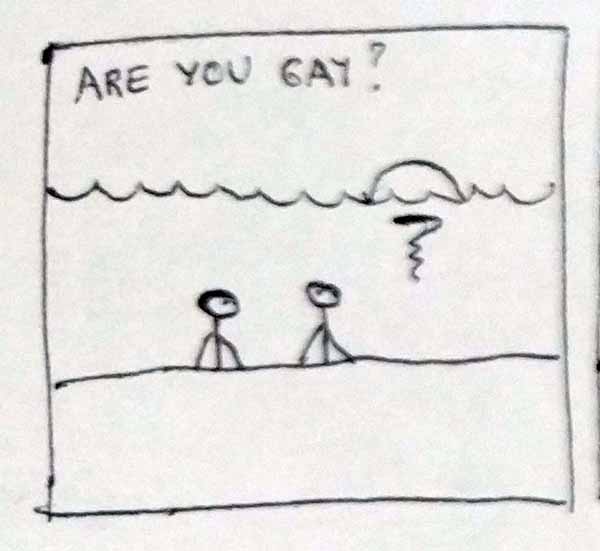 ARE YOU GAY?